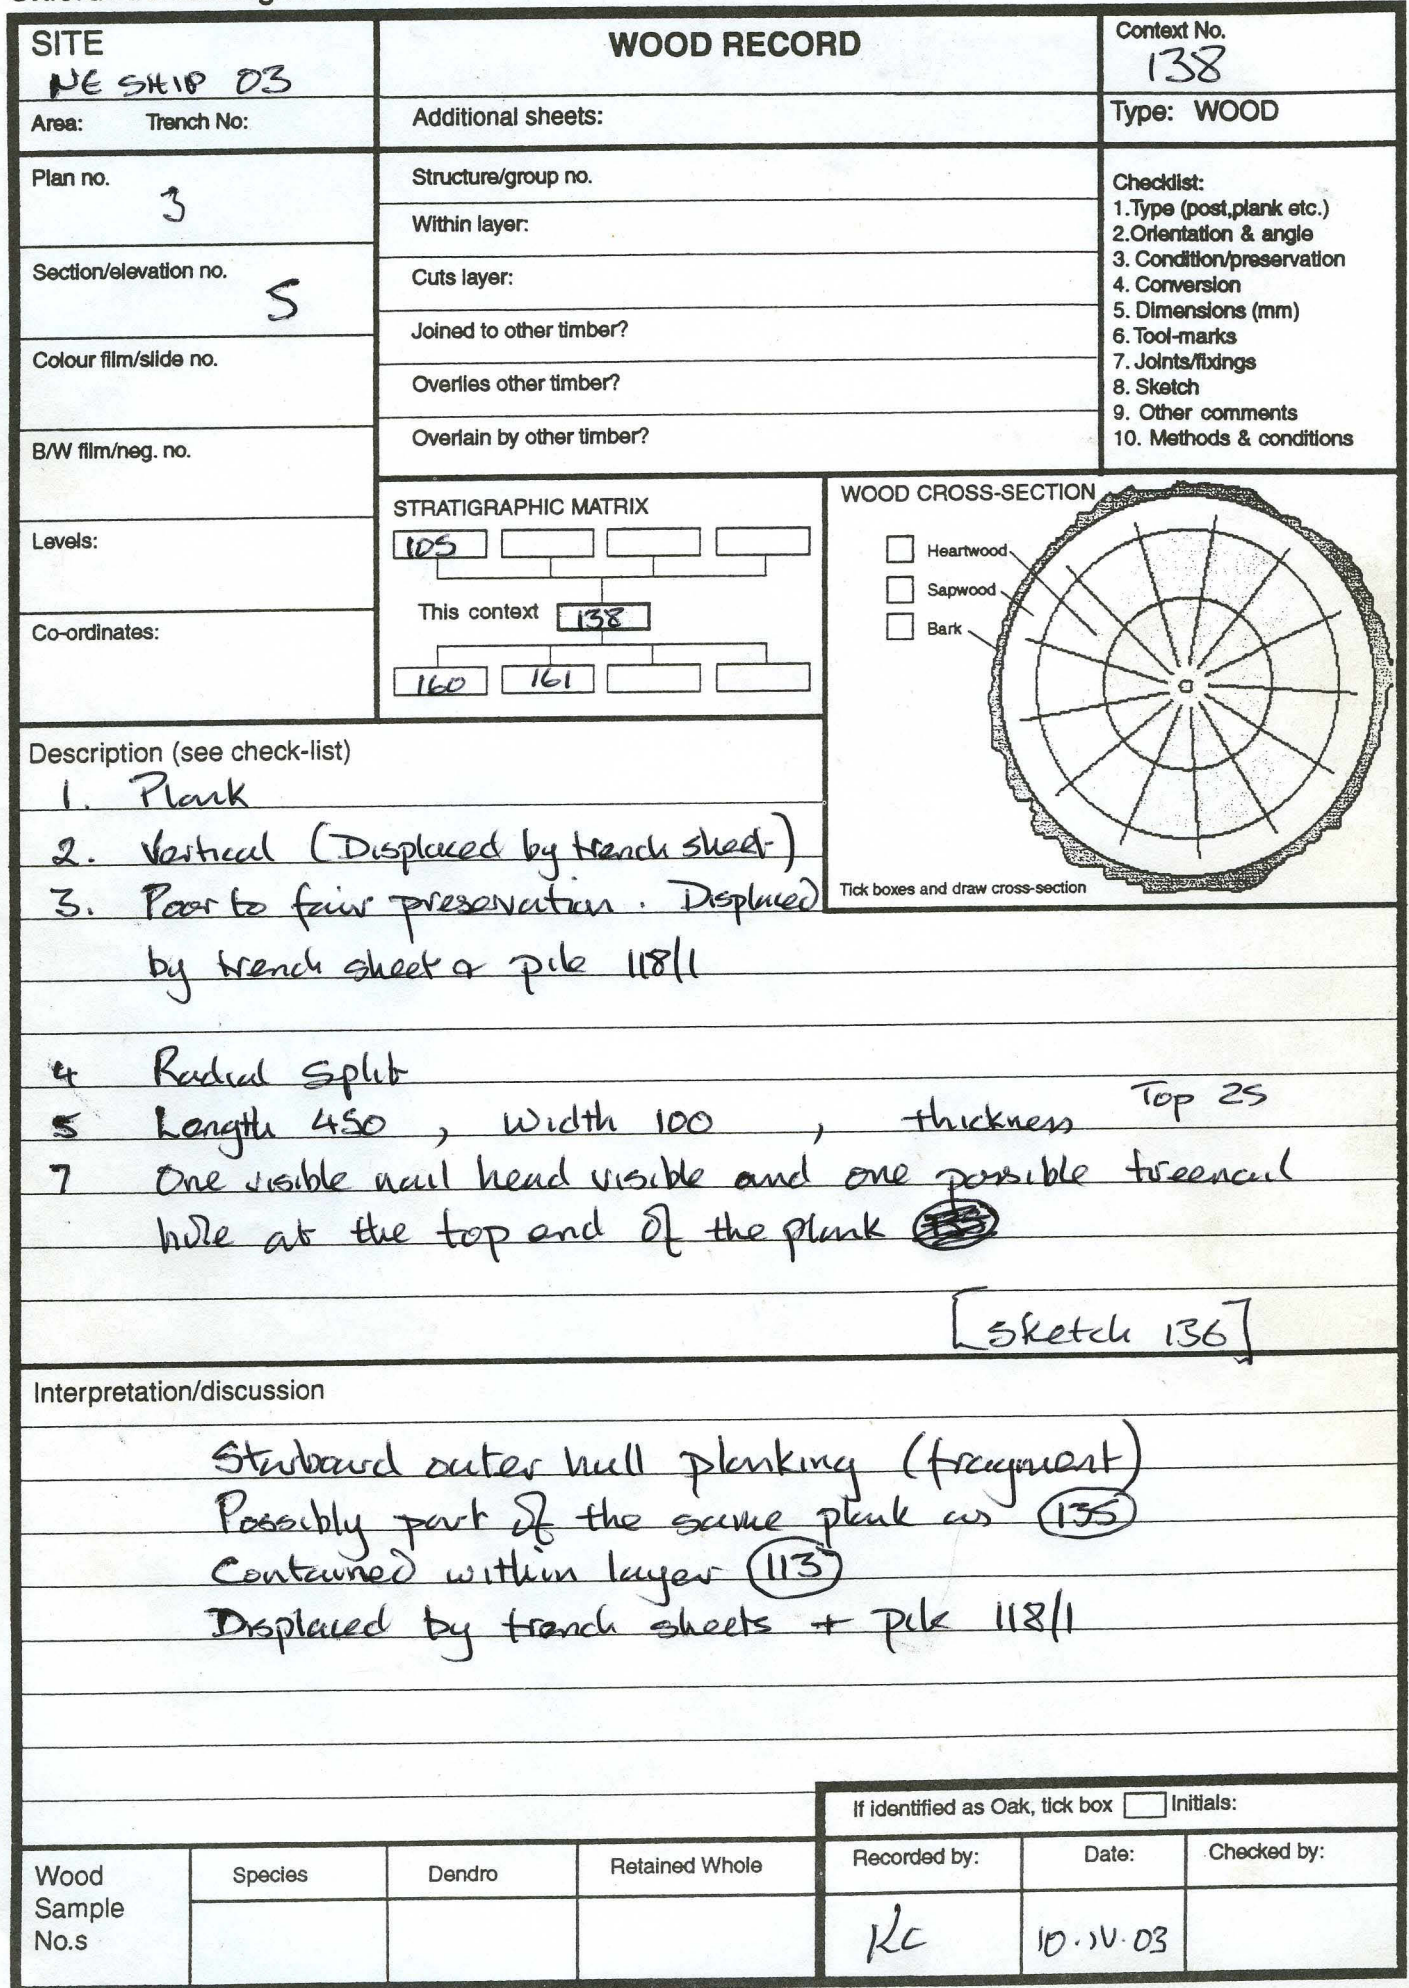 SITE
NE SHIP 03
WOOD RECORD
Context No.
138
Area: Trench No:
Additional sheets:
Type: WOOD
Plan no.
3
Structure/group no.
Within layer:
Section/elevation no.
5
Cuts layer:
Joined to other timber?
Colour film/slide no.
Overlies other timber?
B/W film/neg. no.
Overlain by other timber?
Checklist:
1.Type (post,plank etc.)
2.Orientation & angle
3. Condition/preservation
4. Conversion
5. Dimensions (mm)
6. Tool-marks
7. Joints/fixings
8. Sketch
9. Other comments
10. Methods & conditions
Levels:
Co-ordinates:
STRATIGRAPHIC MATRIX
105
This context 138
160 161
WOOD CROSS-SECTION
Heartwood
Sapwood
Bark
Tick boxes and draw cross-section
Description (see check-list)
1. Plank
2. Vertical (Displaced by trench sheet)
3. Poor to fair preservation. Displaced
by trench sheet & pile 118/1
4 Radial split
5 Length 450, Width 100, thickness Top 25
7 One visible nail head visible and one possible treenail
hole at the top end of the plank
[Sketch 136]
Interpretation/discussion
Starboard outer hull planking (fragment)
Possibly part of the same plank as 135
Contained within layer 113
Displaced by trench sheets + pile 118/1
If identified as Oak, tick box Initials:
Wood
Sample
No.s
Species
Dendro
Retained Whole
Recorded by:
KC
Date:
10.IV.03
Checked by: